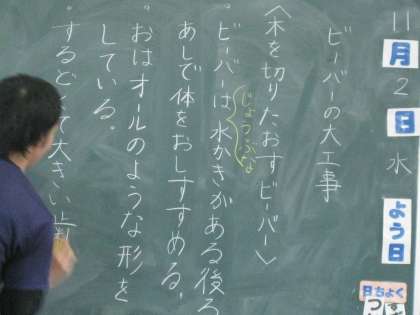 11月2日水よう日
ビーバーの大工事
〈木を切りたおすビーバー〉
じょうぶな
。ビーバーは水かきがある後ろ
あしで体をおしすすめる。
。おはオールのような形を
している。
。するどくて大きい歯
日ちょく